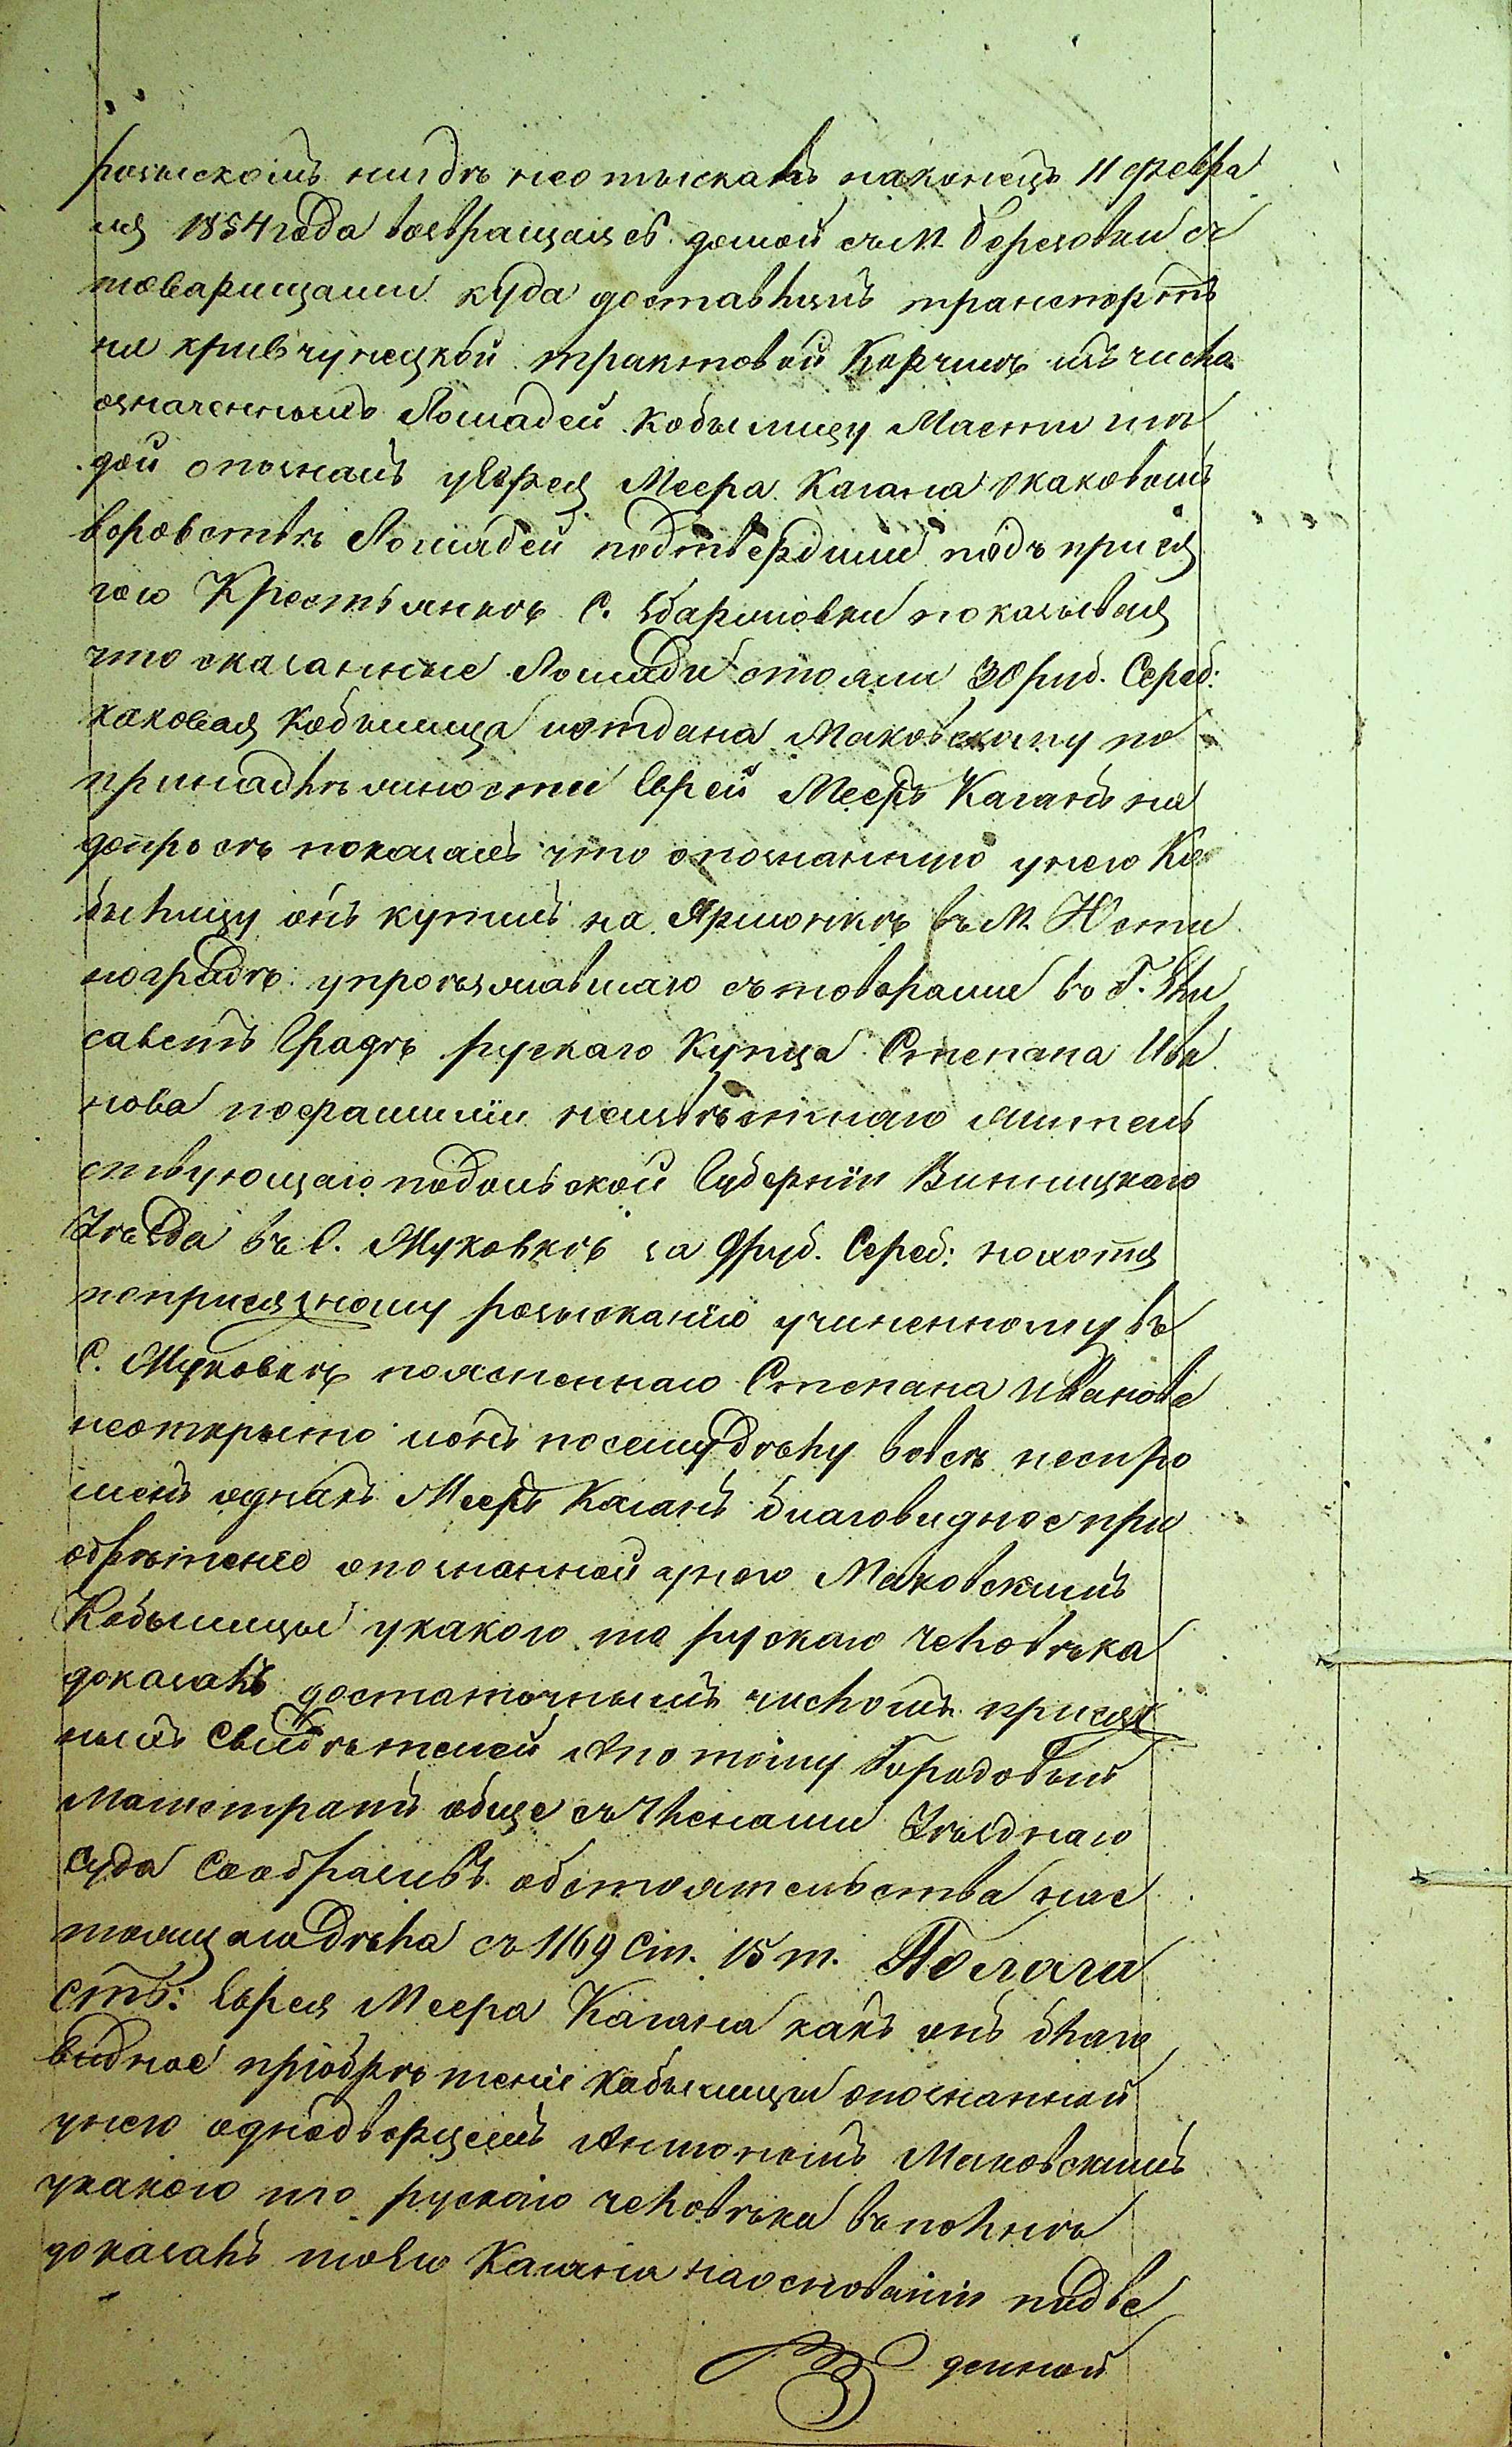 розыскомъ нигдѣ неотыскалъ наконецъ 11 февра
ля 1854 года возвращаясь домой съ М. Березовки съ
товарищами куда доставлялъ транспортъ
на кривчунецкой трактовой Корчмѣ изъ числа
означенныхъ Лошадей Кобылицу Масти гнѣ
дой опозналъ уЕврея Меера Кагана окаковомъ
воровствѣ Лошадей подтвердили подъ прися
гою Крестьянѣ С. показывая
что сказанные Лошади стояли 30 руб. Сереб:
каковая Кобылица иотдана Маковскому по
принадлѣжности Еврей Мееръ Каганъ на
допросѣ показалъ что опознанную унего Ко
былицу онъ купилъ на Ярмонкѣ въ М. Юсти
ноградѣ упроезжавшаго стоварами въ Г. Ели
саветъ Градъ рускаго Купца Степана Ива
нова пофамилии неизвѣстнаго жител
ствующаго подольской Губерніи Винницкаго
Уѣзда въ С. Жуковкѣ за 9 руб. Сереб: нохотя
поприсяжному розысканію учиненному въ
С. Жуковкѣ поясненнаго Степана Иванова
неоткрыто ионъ посемудѣлу вовсѣ неспро
шенъ однакъ Мееръ Каганъ благовидное при
обрѣтеніе опознанной унего Маковскимъ
Кобылицы укакого то рускаго человѣка
доказалъ достаточнымъ числомъ присяж
ныхъ Свидѣтелей Апотому Городовый
Магистратъ обще съ Членами Уѣзднаго
Суда Сообразивъ обстоятельства нас
тоящагодѣла съ 1169 Ст. 15 т. Полага
етъ: Еврея Меера Кагана какъ онъ благо
видное пріобрѣтеніе кобылицы опознанной
унего однодворцемъ Антономъ Маковскимъ
укакого то рускаго человѣка въполнѣ
доказалъ тоего Кагана наоснованіи подве
денной